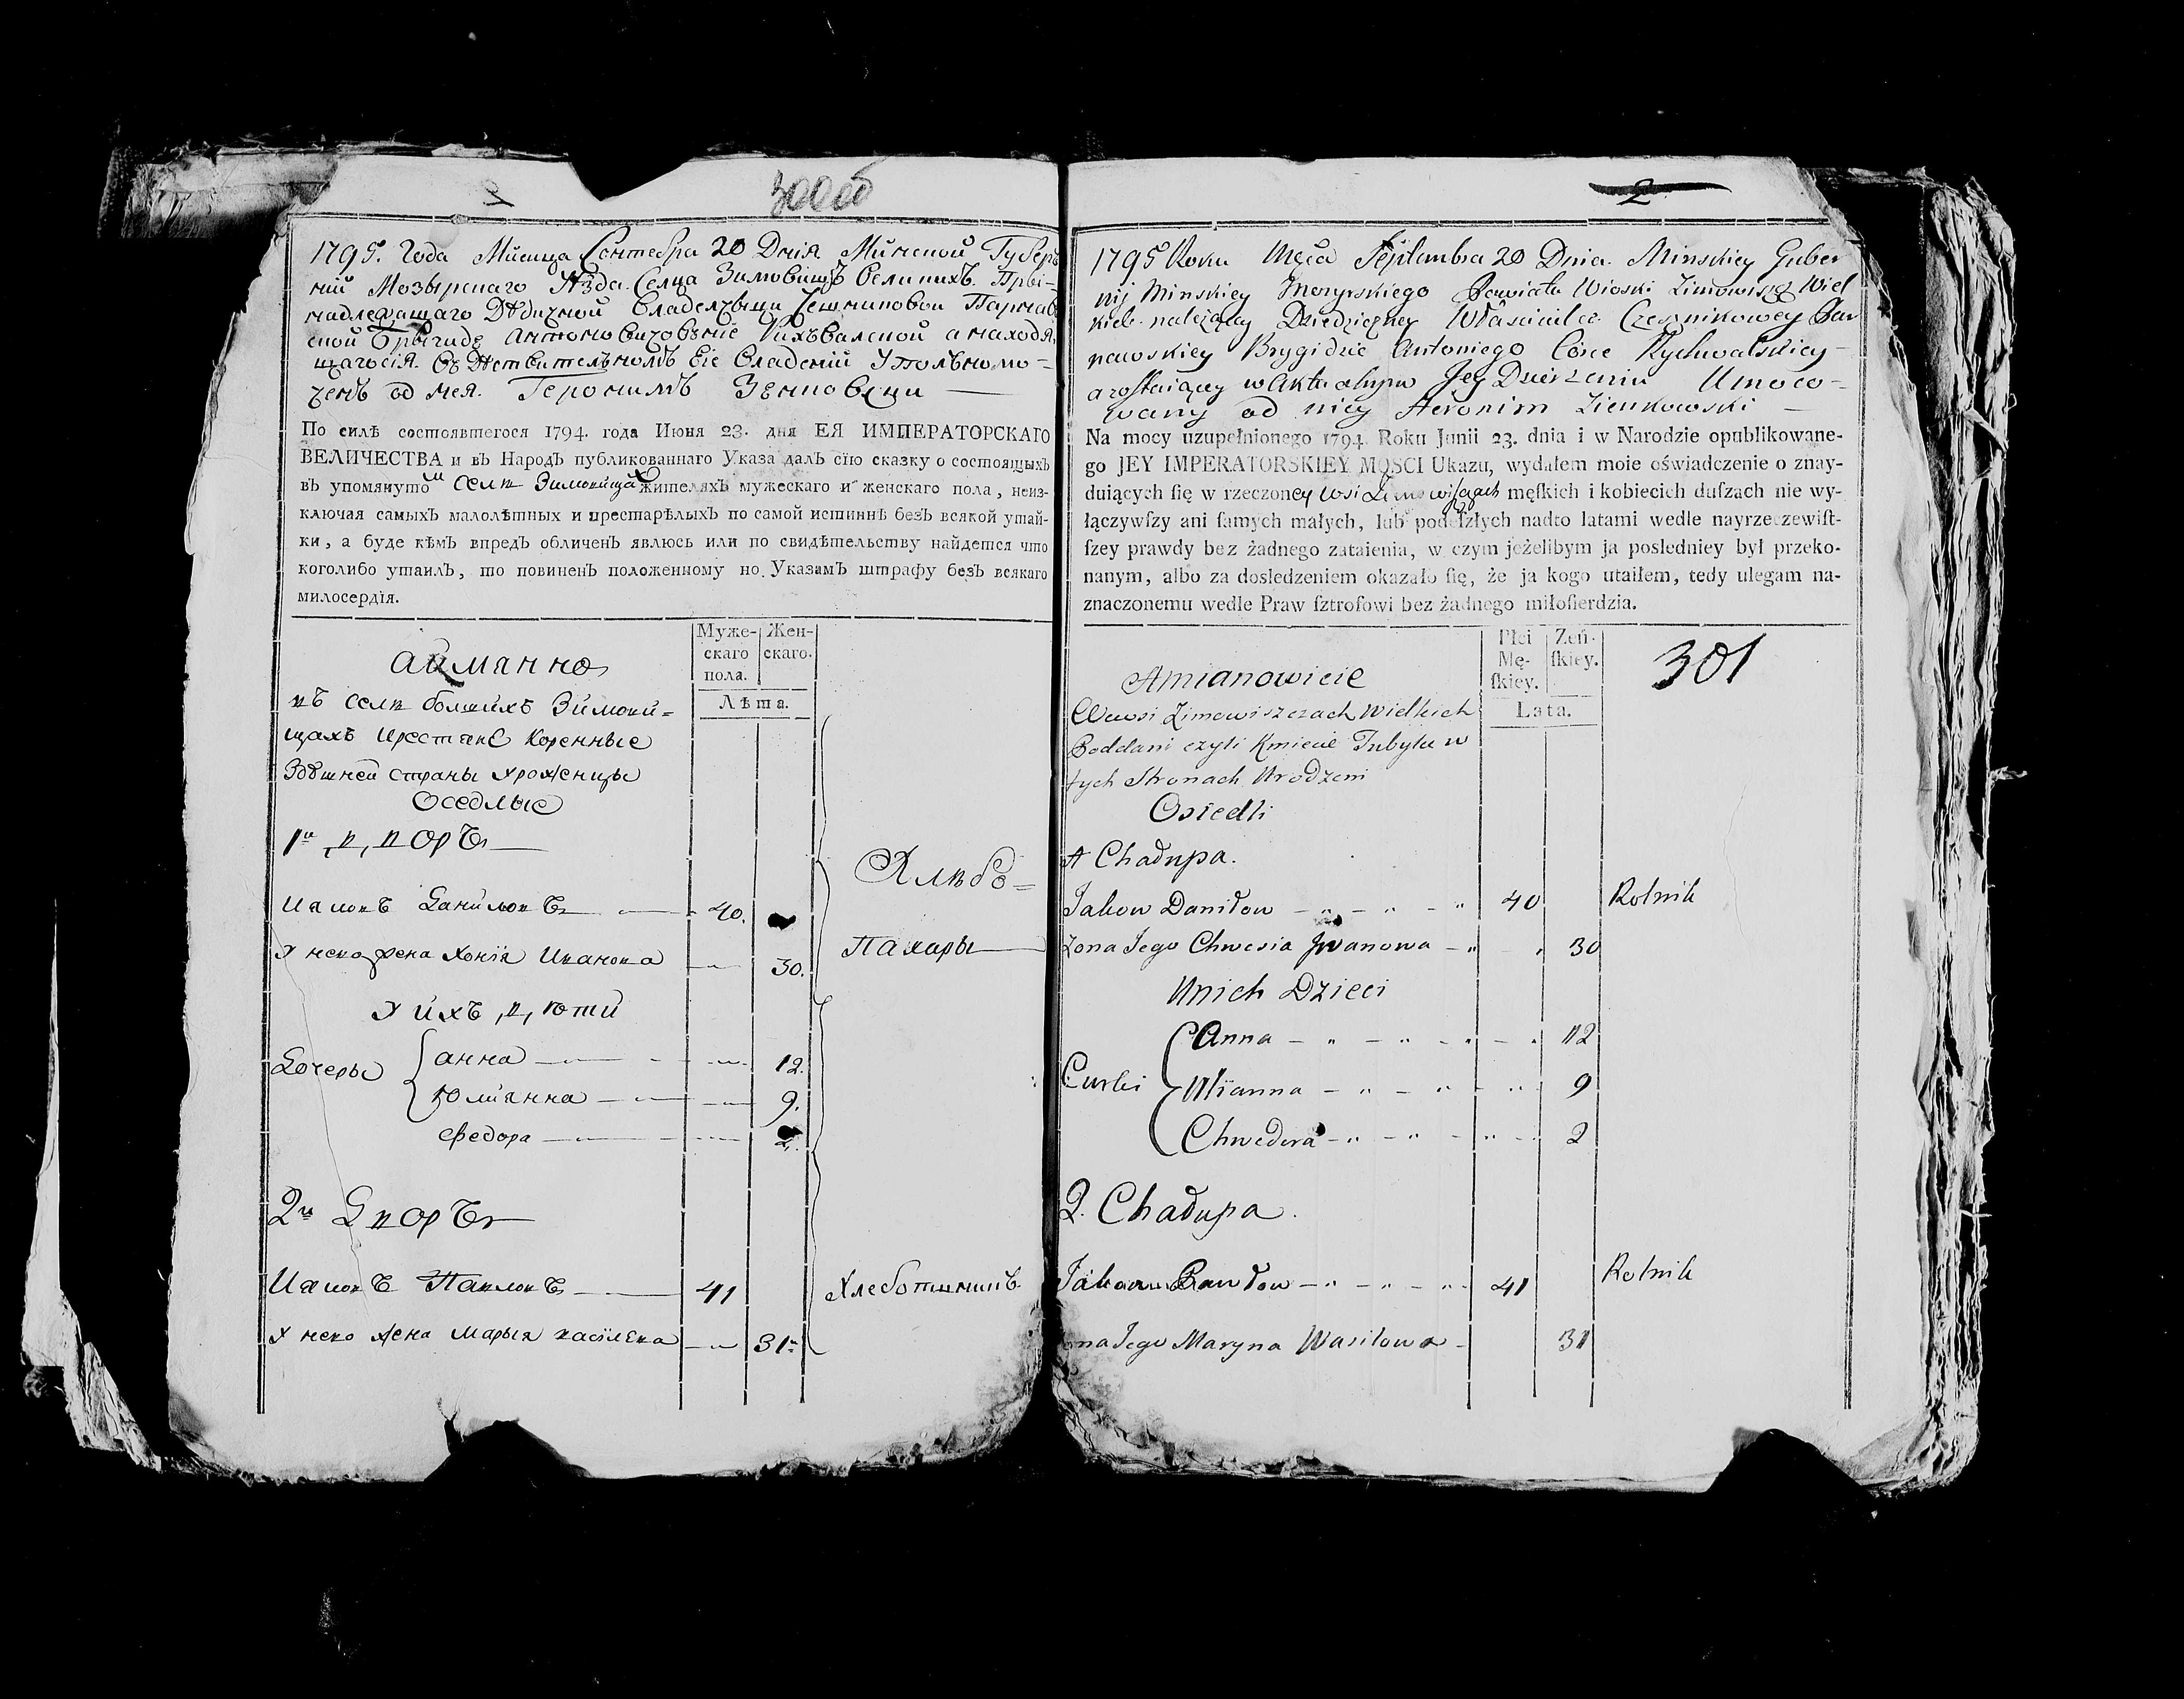 2
300об
1795. Года Мйсяца Сентебра 20 Дния Мйнской Губер
ній Мозырскаго Уѣзда Селца Зимовищъ Великихъ Пры-
надлежащаго Дѣдичной Владелчыцы Чешниковои Тарнав
ской Брыгиде Антоновичовъне Рихъвалской а находя
щагосія Въ Дѣтвителъномъ Еіе Владеній Уполъномо-
ченъ од нея Геронимъ Зенковски
По силѣ состоявшегося 1794. года Июня 23. дня ЕЯ ИМПЕРАТОРСКАГО
ВЕЛИЧЕСТВА и въ Народъ публикованнаго Указа далъ сїю сказку о состоящыхъ
въ упомянуто м селѣ Зимовища х жителяхъ мужескаго и женскаго пола, неиз-
ключая самыхъ малолѣтных и престарѣлыхъ по самой истиннѣ безъ всякой утай-
ки, а буде кѣмъ впредъ обличенъ явлюсь или по свидѣтельству найдется что
коголибо утаилъ, то повиненъ положенному но Указамъ штрафу безъ всякаго
милосердїя.
Муже-
скаго
пола.
Жен-
скаго.
Лѣта.
аимянно
въ селѣ болшихъ Зимови-
щахъ крестяне Коренные
Здѣшней страны уроженцы
Оседлые
1й дворъ
Хлѣбо-
Яковъ Данйловъ 40.
Пахары
У неко жена Хонія Иванова 30.
У ихъ дѣти
Дочеры
анна 12.
Юлиянна 9.
Федора 2.
2й Дворъ
Яковъ Павловъ 41
Хлебопашникъ
У неко жена Марья васілева 31.
2
1795 Roku Męca Septembra 20 Dnia Minskiey Guber
nij Minskiey Mozyrskiego Powiatu Wioski Zimowiszcz Wiel
kich należący Dziedziczney Właścicielce Czesznikowey Tar
nawskiey Brygidzie Antoniego Córce Rychwalskiey-
a zostaiącey w Aktualnym Jey Dzierżeniu Umoco-
wany od niey Heronim Zienkowski
Na mocy uzupełnionego 1794. Roku Junii 23. dnia i w Narodzie opublikowane-
go JEY IMPERATORSKIEY MOSCI Ukazu, wydałem moie oświadczenie o znay-
duiących ſię w rzeczoney wsi Zimowiszczach męſkich i kobiecich duſzach nie wy-
łączywſzy ani ſamych małych, lub podeſzłych nadto latami wedle nayrzeczewiſt-
ſzey prawdy bez żadnego zataienia, w czym jeżelibym ja posledniey był przeko-
nanym, albo za dosledzeniem okazało ſię, że ja kogo utaiłem, tedy ulegam na-
znaczonemu wedle Praw ſztroſowi bez żadnego miłoſierdzia.
Płci
Mę-
ſkiey.
Zeń-
ſkiey.
Lata.
301
Amianowicie
Wewsi Zimowiszczach Wielkich
Poddani czyli Kmiecie Tubylu w
tych Stronach Urodzeni
Osiedli
1 Chadupa.
Jakow Daniłow 40 Rolnik
Zona Jego Chwesia Jwanowa 30
Unich Dzieci
Curki
Anna 12
Ulianna 9
Chwedora 2
2. Chadupa.
Jakow Pawłow 41 Rolnik
ona Jego Maryna Wasilowa 31